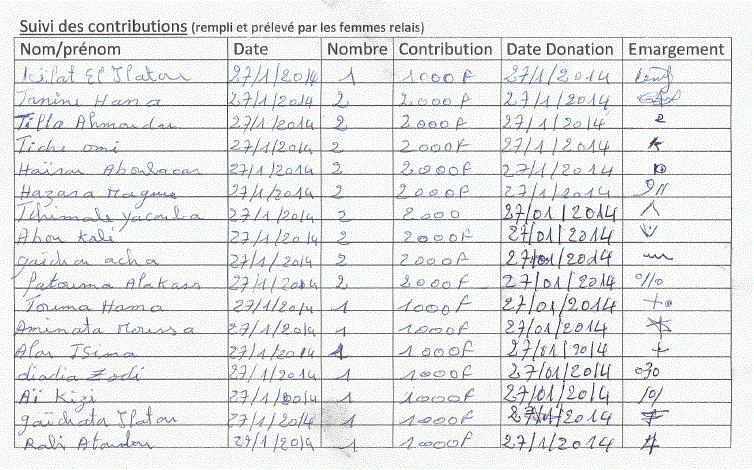 Suivi des contributions (rempli et prélevé par les femmes relais)
Nom/prénom Date Nombre Contribution Date Donation Emargement
El 27/1/2014 1 1000F 27/1/2014
Janine Hama 27/1/2014 2 2000F 27/1/2014
Ahmoudou 27/1/2014 2 2000F 27/1/2014
Tiche omi 27/1/2014 2 2000F 27/1/2014
Haïsa Aboulacar 27/1/2014 2 2000F 27/1/2014
Hazara 27/1/2014 2 2000F 27/1/2014
Tchimale yacouba 27/1/2014 2 2000 27/01/2014
Abou Kali 27/1/2014 2 2000F 27/01/2014
gaichou acha 27/1/2014 2 2000F 27/01/2014
Fatouma Alakass 27/1/2014 2 2000F 27/01/2014
Touma Hama 27/1/2014 1 1000F 27/01/2014
Aminata Moussa 27/1/2014 1 1000F 27/01/2014
Tsima 27/1/2014 1 1000F 27/01/2014
diadia Zodi 27/1/2014 1 1000F 27/01/2014
Aï Kizi 27/1/2014 1 1000F 27/01/2014
gaichata 27/1/2014 1 1000F 27/1/2014
Rali Atoudou 27/1/2014 1 1000F 27/1/2014